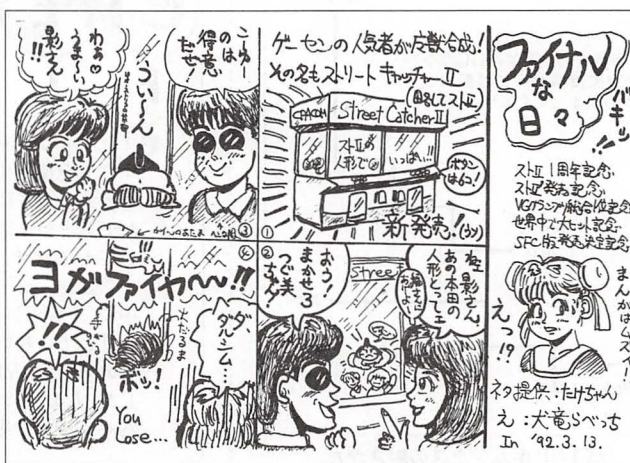 ファイナル
な
日々
バキッ!!
ストⅡ1周年記念
ストⅡ'発売記念
VGグランプリ総合1位記念
世界中で大ヒット記念
SFC版発売決定記念
まんがはムズイー!
えっ!?
ネタ提供:たけちゃん
え:犬竜らべっち
In '92.3.13.
①
ゲーセンの人気者が
その名もストリートキャッチャーⅡ
(略してストⅡ)
CAPCOM
Street Catcher Ⅱ
ストⅡの
人形で
いっぱい!!
ボタン
は6コ!
新発売!(ウソ)
②
ねェ影さん、
あの本田の
人形とってェ
おう!
まかせろ
つぐ美
ちゃん!
Street
③
こーゆー
のは
得意
だぜ!
うぃ〜ん
わぁ♡
うま〜い
影さん
!!
④
ヨガファイヤ〜!!
ダ、
ダルシム…
火だるま
ボッ!
!!
You
Lose...